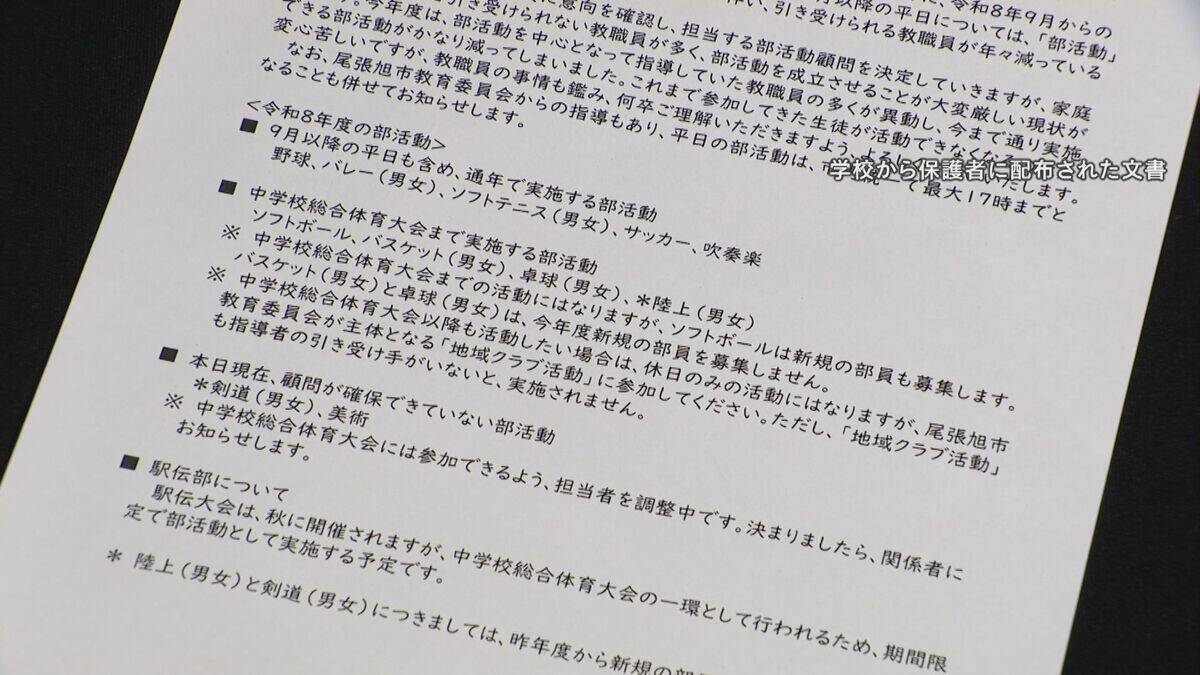 に、令和8年9月からの
意向を確認し、引き受けられる教職員が年々減っている
月以降の平日については、「部活動」
引き受けられない教職員が多く、担当する部活動顧問を決定していきますが、家庭
す。今年度は、部活動を中心となって指導していた教職員の多くが異動し、今まで通り実施
できる部活動がかなり減ってしまいました。これまで参加してきた生徒が活動できなくな
変心苦しいですが、教職員の事情も鑑み、何卒ご理解いただきますよう、よろ
なお、尾張旭市教育委員会からの指導もあり、平日の部活動は、
て最大17時までと
なることも併せてお知らせします。
学校から保護者に配布された文書
<令和8年度の部活動>
■ 9月以降の平日も含め、通年で実施する部活動
野球、バレー(男女)、ソフトテニス(男女)、サッカー、吹奏楽
■ 中学校総合体育大会まで実施する部活動
ソフトボール、バスケット(男女)、卓球(男女)、*陸上(男女)
※ 中学校総合体育大会までの活動にはなりますが、ソフトボールは新規の部員も募集します。
バスケット(男女)と卓球(男女)は、今年度新規の部員を募集しません。
※ 中学校総合体育大会以降も活動したい場合は、休日のみの活動にはなりますが、尾張旭市
教育委員会が主体となる「地域クラブ活動」に参加してください。ただし、「地域クラブ活動」
も指導者の引き受け手がいないと、実施されません。
■ 本日現在、顧問が確保できていない部活動
*剣道(男女)、美術
※ 中学校総合体育大会には参加できるよう、担当者を調整中です。決まりましたら、関係者に
お知らせします。
■ 駅伝部について
駅伝大会は、秋に開催されますが、中学校総合体育大会の一環として行われるため、期間限
定で部活動として実施する予定です。
* 陸上(男女)と剣道(男女)につきましては、昨年度から新規の部